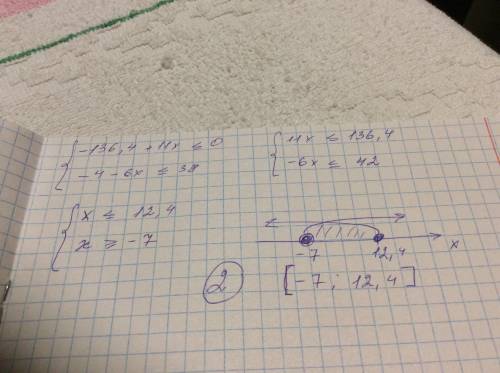 { -136,4 + 11x ≤ 0
-4 - 6x ≤ 38
{ 11x ≤ 136,4
-6x ≤ 42
{ x ≤ 12,4
x ≥ -7
-7 12,4 x
2 [-7; 12,4]